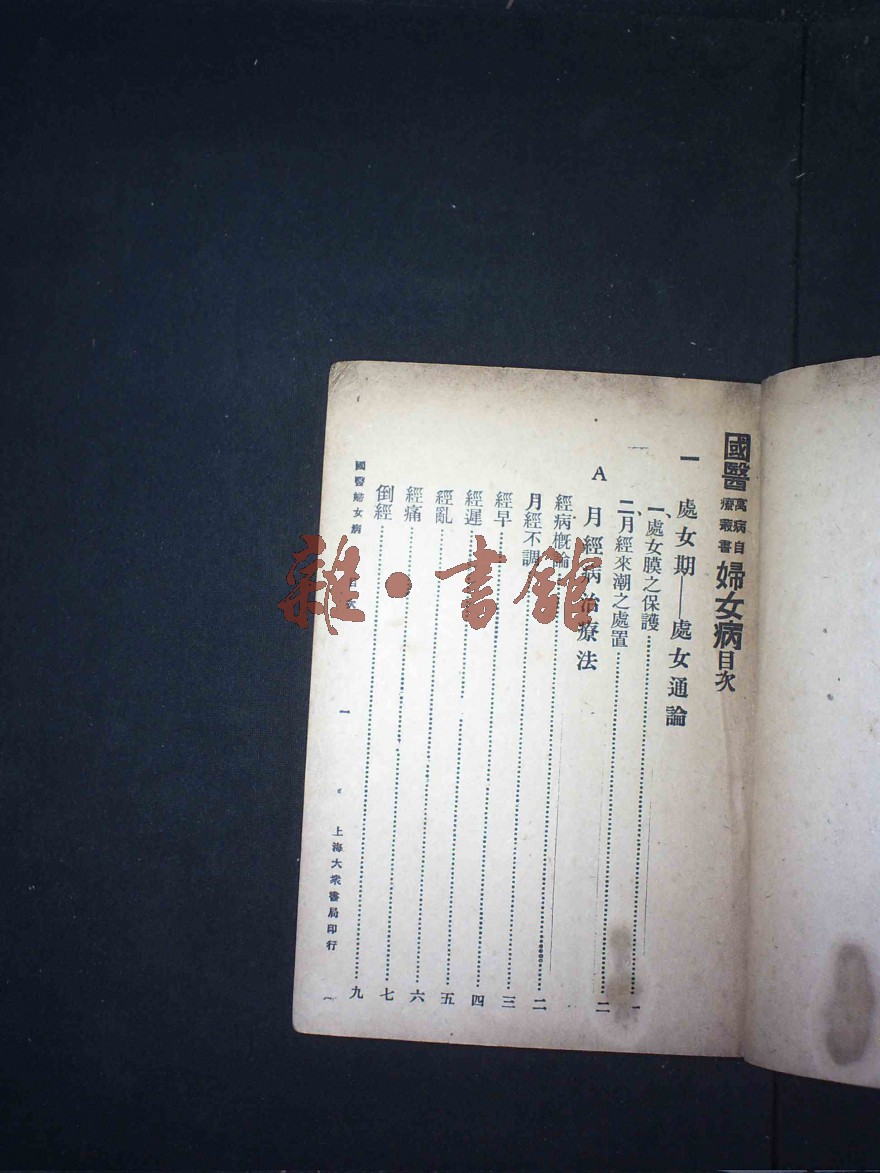 國醫萬病自療叢書婦女病目次
一 處女期——處女通論
一、處女膜之保護……一
二、月經來潮之處置……二
A 月經病治療法
經病概論……二
月經不調……三
經早……四
經遲……五
經亂……六
經痛……七
倒經……九
國醫婦女病 目次 一 上海大衆書局印行
雜·書館